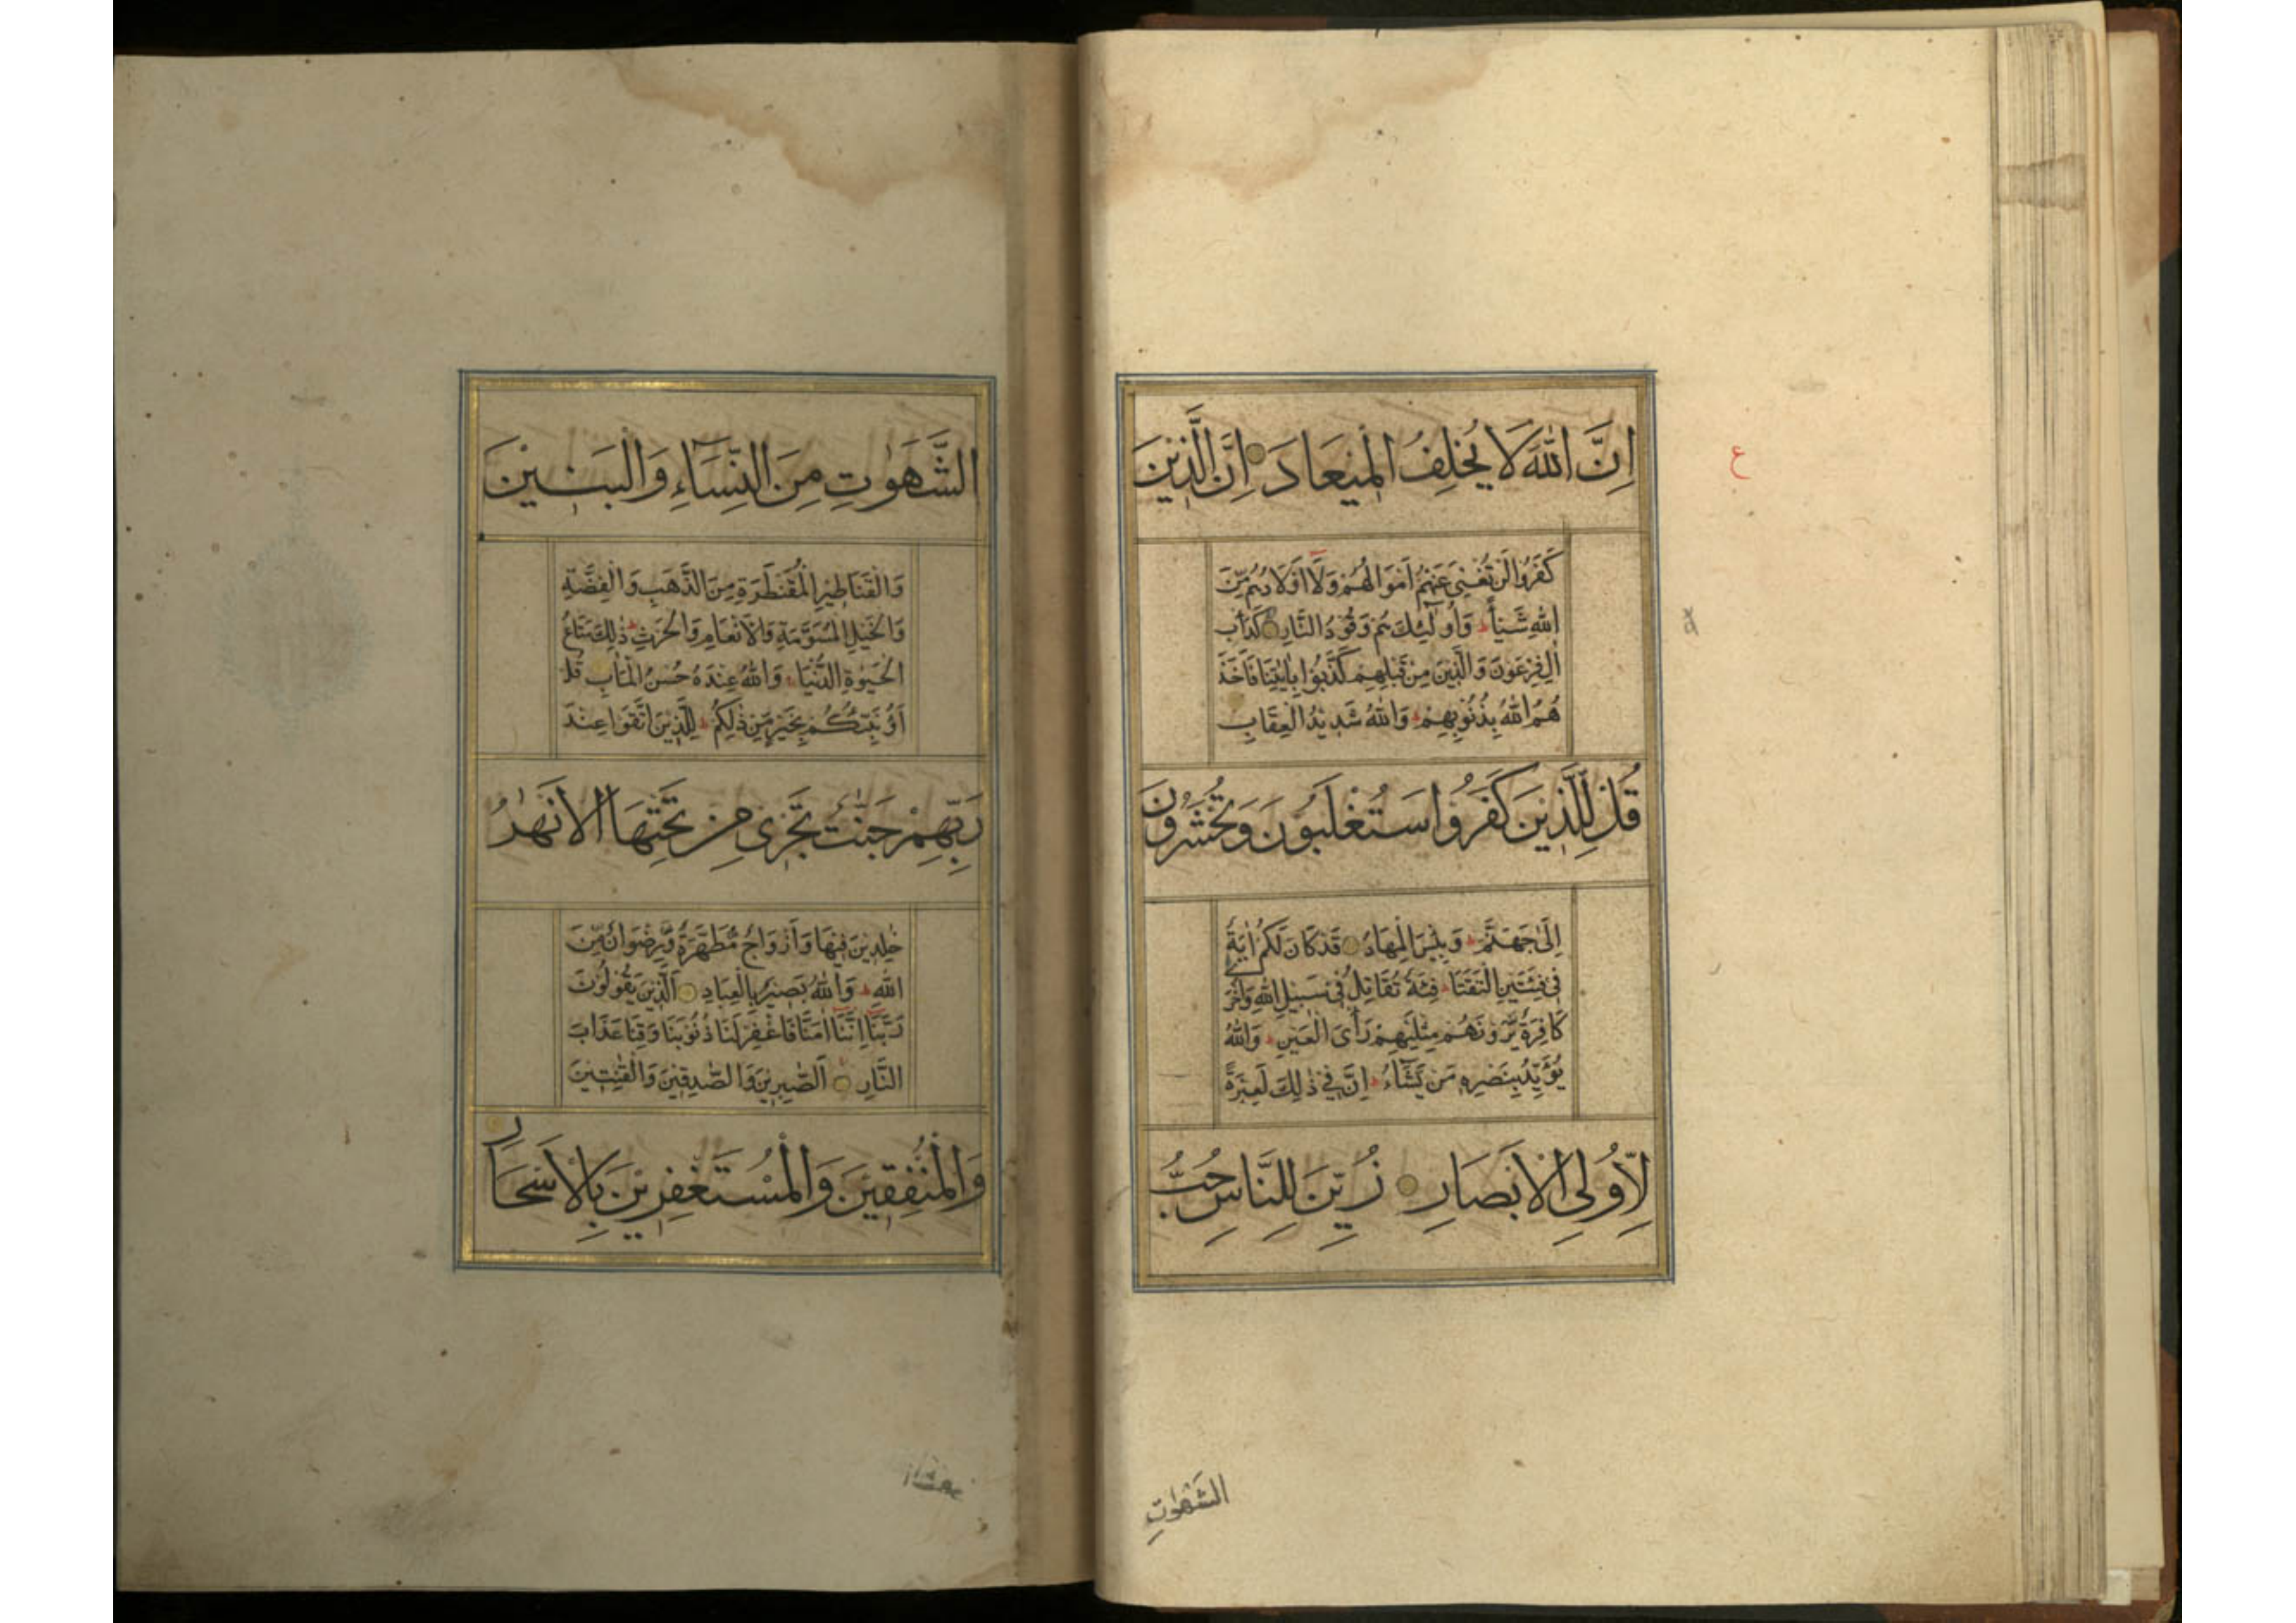 اِنَّ اللّٰهَ لَا يُخْلِفُ الْمِيْعَادَ اِنَّ الَّذِيْنَ
كَفَرُوْا لَنْ تُغْنِيَ عَنْهُمْ اَمْوَالُهُمْ وَلَا اَوْلَادُهُمْ مِّنَ
اللّٰهِ شَيْأً ط وَاُولٰٓئِكَ هُمْ وَقُوْدُ النَّارِ كَدَاْبِ
اٰلِ فِرْعَوْنَ وَالَّذِيْنَ مِنْ قَبْلِهِمْ كَذَّبُوْا بِاٰيٰتِنَا فَاَخَذَ
هُمُ اللّٰهُ بِذُنُوْبِهِمْ ط وَاللّٰهُ شَدِيْدُ الْعِقَابِ
قُلْ لِلَّذِيْنَ كَفَرُوْا سَتُغْلَبُوْنَ وَتُحْشَرُوْنَ
اِلٰى جَهَنَّمَ ط وَبِئْسَ الْمِهَادُ قَدْ كَانَ لَكُمْ اٰيَةٌ
فِيْ فِئَتَيْنِ الْتَقَتَا ط فِئَةٌ تُقَاتِلُ فِيْ سَبِيْلِ اللّٰهِ وَاُخْرٰى
كَافِرَةٌ يَّرَوْنَهُمْ مِثْلَيْهِمْ رَأْىَ الْعَيْنِ ط وَاللّٰهُ
يُؤَيِّدُ بِنَصْرِهٖ مَنْ يَّشَآءُ ط اِنَّ فِيْ ذٰلِكَ لَعِبْرَةً
لِّاُولِى الْاَبْصَارِ زُيِّنَ لِلنَّاسِ حُبُّ
الشَّهَوٰتِ
ع
الشَّهَوٰتِ مِنَ النِّسَآءِ وَالْبَنِيْنَ
وَالْقَنَاطِيْرِ الْمُقَنْطَرَةِ مِنَ الذَّهَبِ وَالْفِضَّةِ
وَالْخَيْلِ الْمُسَوَّمَةِ وَالْاَنْعَامِ وَالْحَرْثِ ط ذٰلِكَ مَتَاعُ
الْحَيٰوةِ الدُّنْيَا ط وَاللّٰهُ عِنْدَهُ حُسْنُ الْمَاٰبِ قُلْ
اَؤُنَبِّئُكُمْ بِخَيْرٍ مِّنْ ذٰلِكُمْ ط لِلَّذِيْنَ اتَّقَوْا عِنْدَ
رَبِّهِمْ جَنّٰتٌ تَجْرِيْ مِنْ تَحْتِهَا الْاَنْهٰرُ
خٰلِدِيْنَ فِيْهَا وَاَزْوَاجٌ مُّطَهَّرَةٌ وَّرِضْوَانٌ مِّنَ
اللّٰهِ ط وَاللّٰهُ بَصِيْرٌ بِالْعِبَادِ اَلَّذِيْنَ يَقُوْلُوْنَ
رَبَّنَا اِنَّنَا اٰمَنَّا فَاغْفِرْ لَنَا ذُنُوْبَنَا وَقِنَا عَذَابَ
النَّارِ اَلصّٰبِرِيْنَ وَالصّٰدِقِيْنَ وَالْقٰنِتِيْنَ
وَالْمُنْفِقِيْنَ وَالْمُسْتَغْفِرِيْنَ بِالْاَسْحَارِ